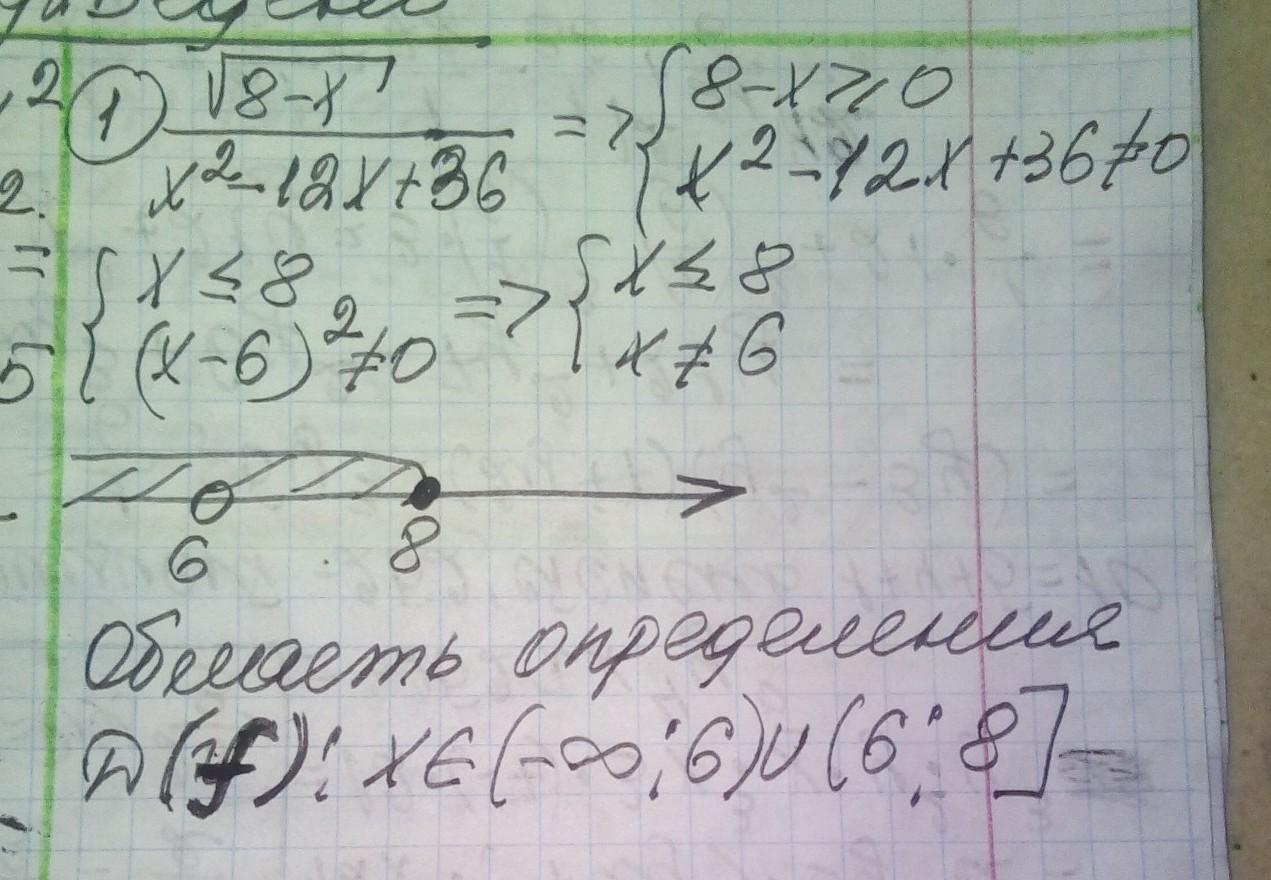 ,2 ① √(8-x) / (x²-12x+36) => { 8-x ⩾ 0
x²-12x+36≠0
2.
= { x ≤ 8 => { x ≤ 8
5 (x-6)²≠0 x ≠ 6
6 8
Область определения
D(f): x∈(-∞;6)∪(6;8]